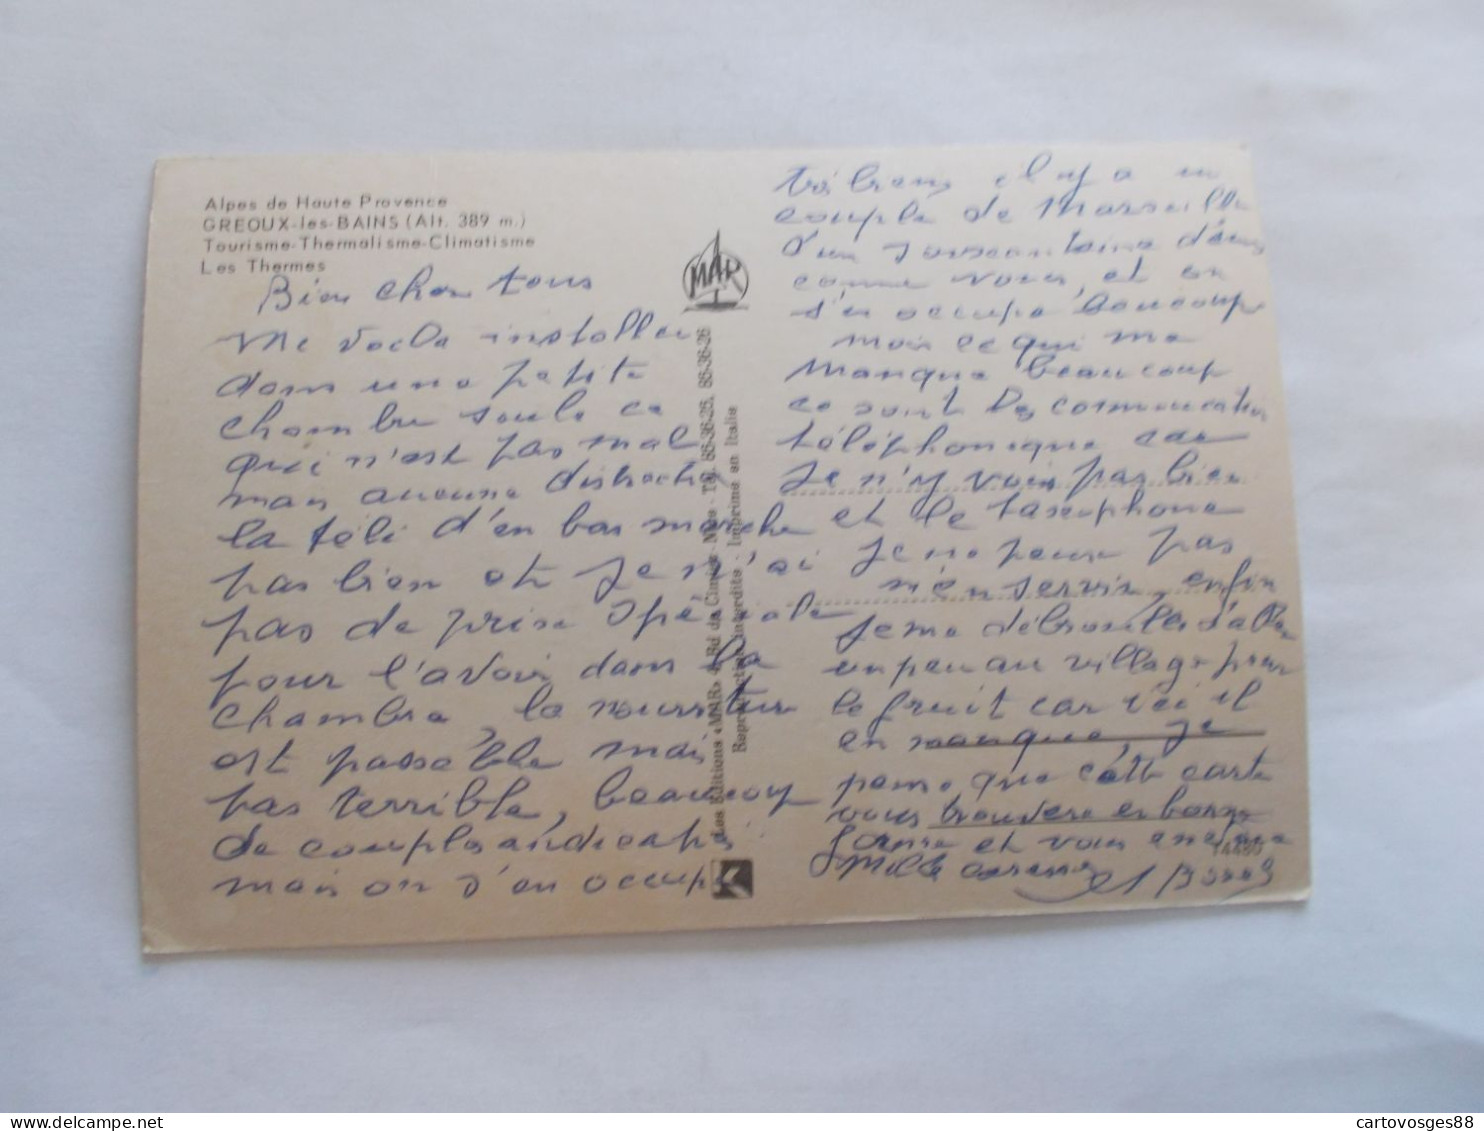 Alpes de Haute Provence
GREOUX-les-BAINS (Alt. 389 m.)
Tourisme-Thermalisme-Climatisme
Les Thermes
Bien cher tous
Me voila installer
dans une petite
chambre seule ce
qui n'est pas mal
mais aucune distraction
la téli d'en bas marche
pas bien et je n'ai
pas de prise spéciale
pour l'avoir dans la
chambre, la nourriture
est passable mais
pas terrible, beaucoup
de couples andicapés
mais on s'en occupe
MAR
Les Editions «MAR» Bd de Cimiez Nice - Tél. 85-36-25, 85-36-26
Reproduction interdite - Imprimé en Italie
K
très bien il y a un
couple de Marseille
d'un soixantaine d'années
comme vous, et on
s'en occupe beaucoup
mais ce qui me
manque beaucoup
ce sont les communication
téléphonique car
je n'y vois pas bien
et le taxephone
je ne peux pas
m'en servir, enfin
je me debrouille d'aller
un peu au village pour
le fruit car ici il
en manque, je
pense que cette carte
vous trouvera en bonne
forme et vous
mille
14480
cartovosges88